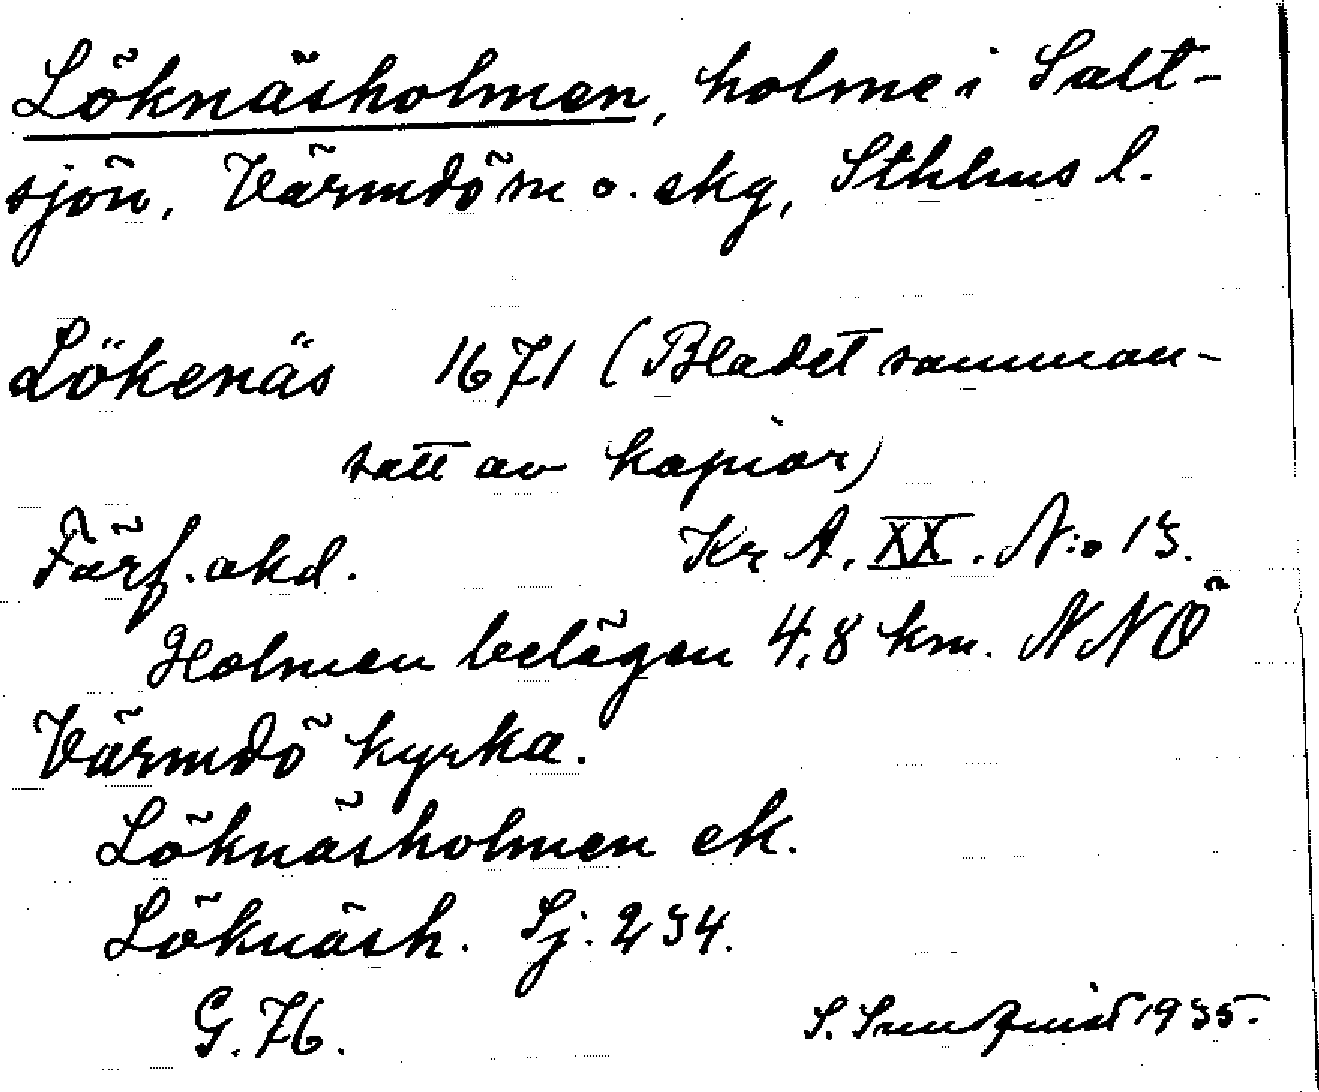 Löknäsholmen, holme i Salt-
sjön, Värmdö sn o. skg, Sthlms l.
Lökenäs 1671 (Bladet samman-
satt av kopior)
Förf. okd. Kr A. XX. N:o 13.
Holmen belägen 4,8 km. NNÖ
Värmdö kyrka.
Löknäsholmen ek.
Löknäsh. Sj. 234.
G. 76. S. Sundquist 1935.